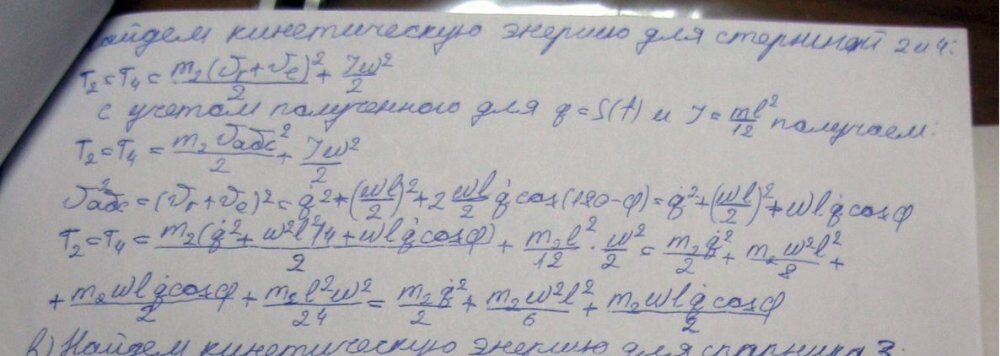 найдем кинетическую энергию для стержней 2 и 4:
T₂ = T₄ = m₂(v_r + v_e)²/2 + Jω²/2
с учетом полученного для q = S(t) и J = ml²/12 получаем:
T₂ = T₄ = m₂v_абс²/2 + Jω²/2
v_абс² = (v_r + v_e)² = q̇² + (ωl/2)² + 2 ωl/2 q̇ cos(180-φ) = q̇² + (ωl/2)² + ωlq̇cosφ
T₂ = T₄ = m₂(q̇² + ω²l²/4 + ωlq̇cosφ)/2 + m₂l²/12 · ω²/2 = m₂q̇²/2 + m₂ω²l²/8 +
+ m₂ωlq̇cosφ/2 + m₂l²ω²/24 = m₂q̇²/2 + m₂ω²l²/6 + m₂ωlq̇cosφ/2
в) Найдем кинетическую энергию для 3: